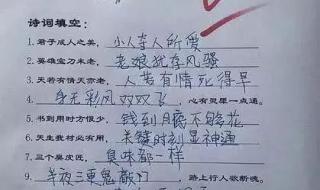 诗词填空：
1. 君子成人之美， 小人夺人所爱
2. 英雄宝刀未老， 老娘犹存风骚
3. 天若有情天亦老， 人若有情死得早
4. 身无彩凤双双飞 ，心有灵犀一点通。
5. 书到用时方恨少， 钱到月底不够花
6. 天生我材必有用， 关键时刻显神通
7. 三个臭皮匠， 臭味都一样
9. 半夜三更鬼敲门 ，路上行人欲断魂。